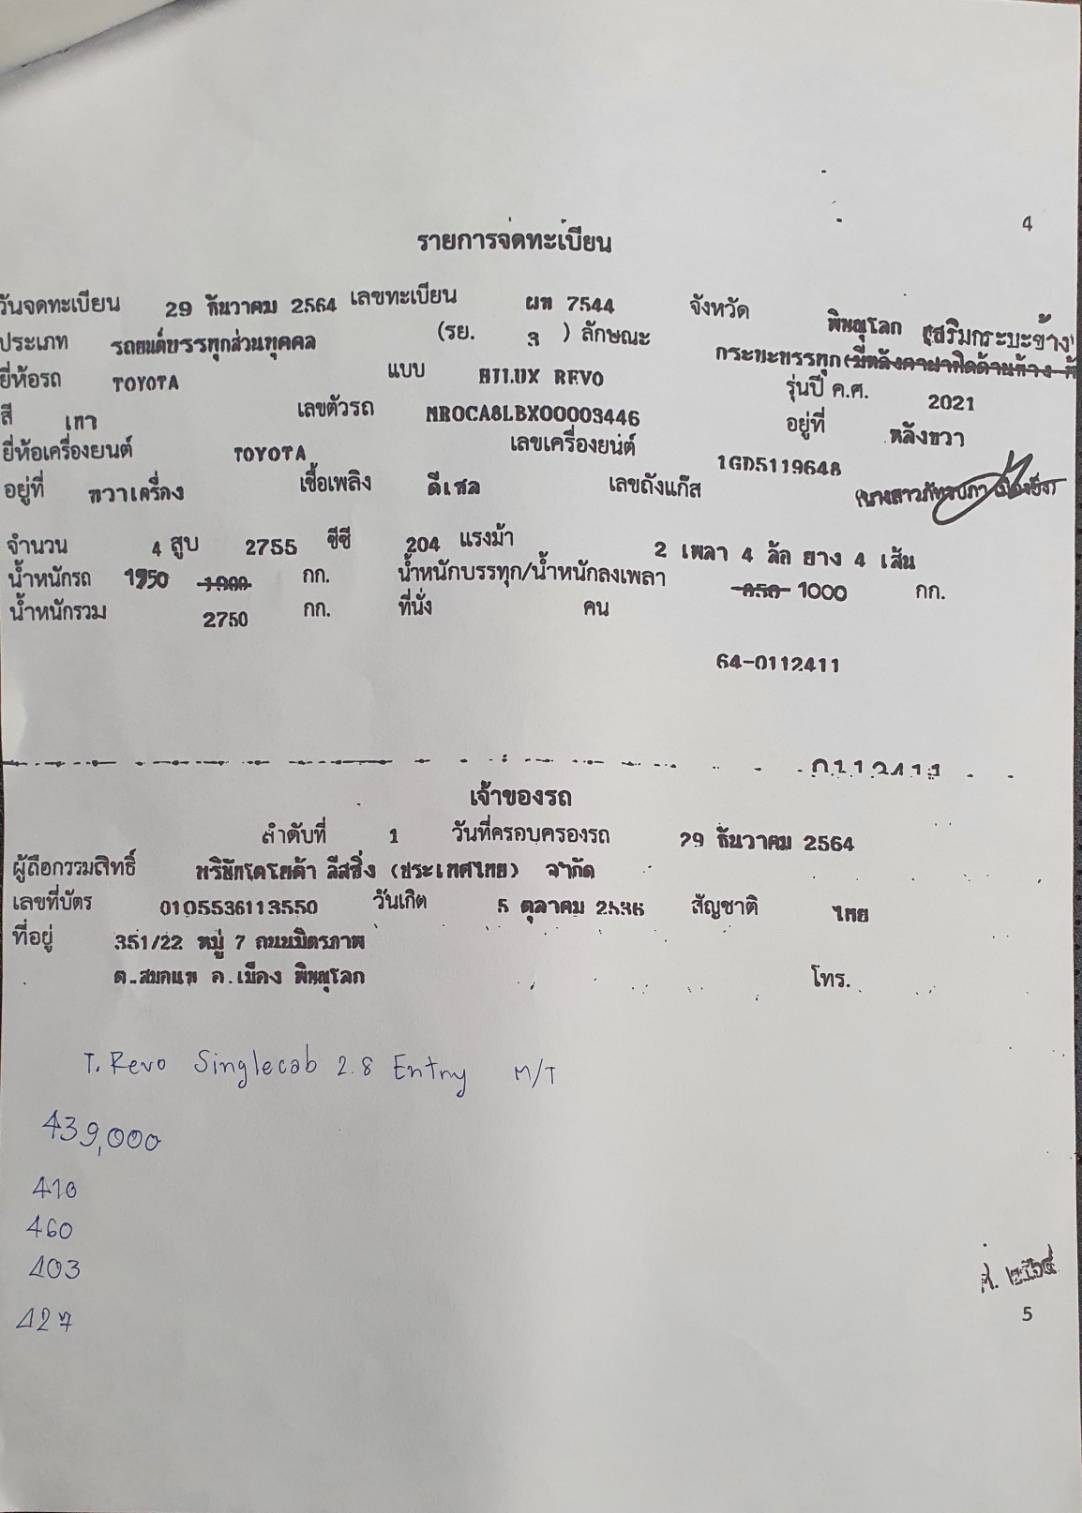 4
รายการจดทะเบียน
วันจดทะเบียน 29 ธันวาคม 2564 เลขทะเบียน ผท 7544 จังหวัด พิษณุโลก (เสริมกระบะข้าง)
ประเภท รถยนต์บรรทุกส่วนบุคคล (รย. 3 ) ลักษณะ กระบะบรรทุก
ยี่ห้อรถ TOYOTA แบบ HILUX REVO รุ่นปี ค.ศ. 2021
สี เทา เลขตัวรถ MR0CA8LBX00003446 อยู่ที่ หลังขวา
ยี่ห้อเครื่องยนต์ TOYOTA เลขเครื่องยนต์ 1GD5119648
อยู่ที่ ขวาเครื่อง เชื้อเพลิง ดีเซล เลขถังแก๊ส
จำนวน 4 สูบ 2755 ซีซี 204 แรงม้า 2 เพลา 4 ล้อ ยาง 4 เส้น
น้ำหนักรถ 1750 1900 กก. น้ำหนักบรรทุก/น้ำหนักลงเพลา 850 1000 กก.
น้ำหนักรวม 2750 กก. ที่นั่ง คน
64-0112411
0112411
เจ้าของรถ
ลำดับที่ 1 วันที่ครอบครองรถ 29 ธันวาคม 2564
ผู้ถือกรรมสิทธิ์ บริษัทโตโยต้า ลีสซิ่ง (ประเทศไทย) จำกัด
เลขที่บัตร 0105536113550 วันเกิด 5 ตุลาคม 2536 สัญชาติ ไทย
ที่อยู่ 351/22 หมู่ 7 ถนนมิตรภาพ
ต.สมอแข อ.เมือง พิษณุโลก โทร.
T. Revo Singlecab 2.8 Entry M/T
439,000
410
460
403
427
5